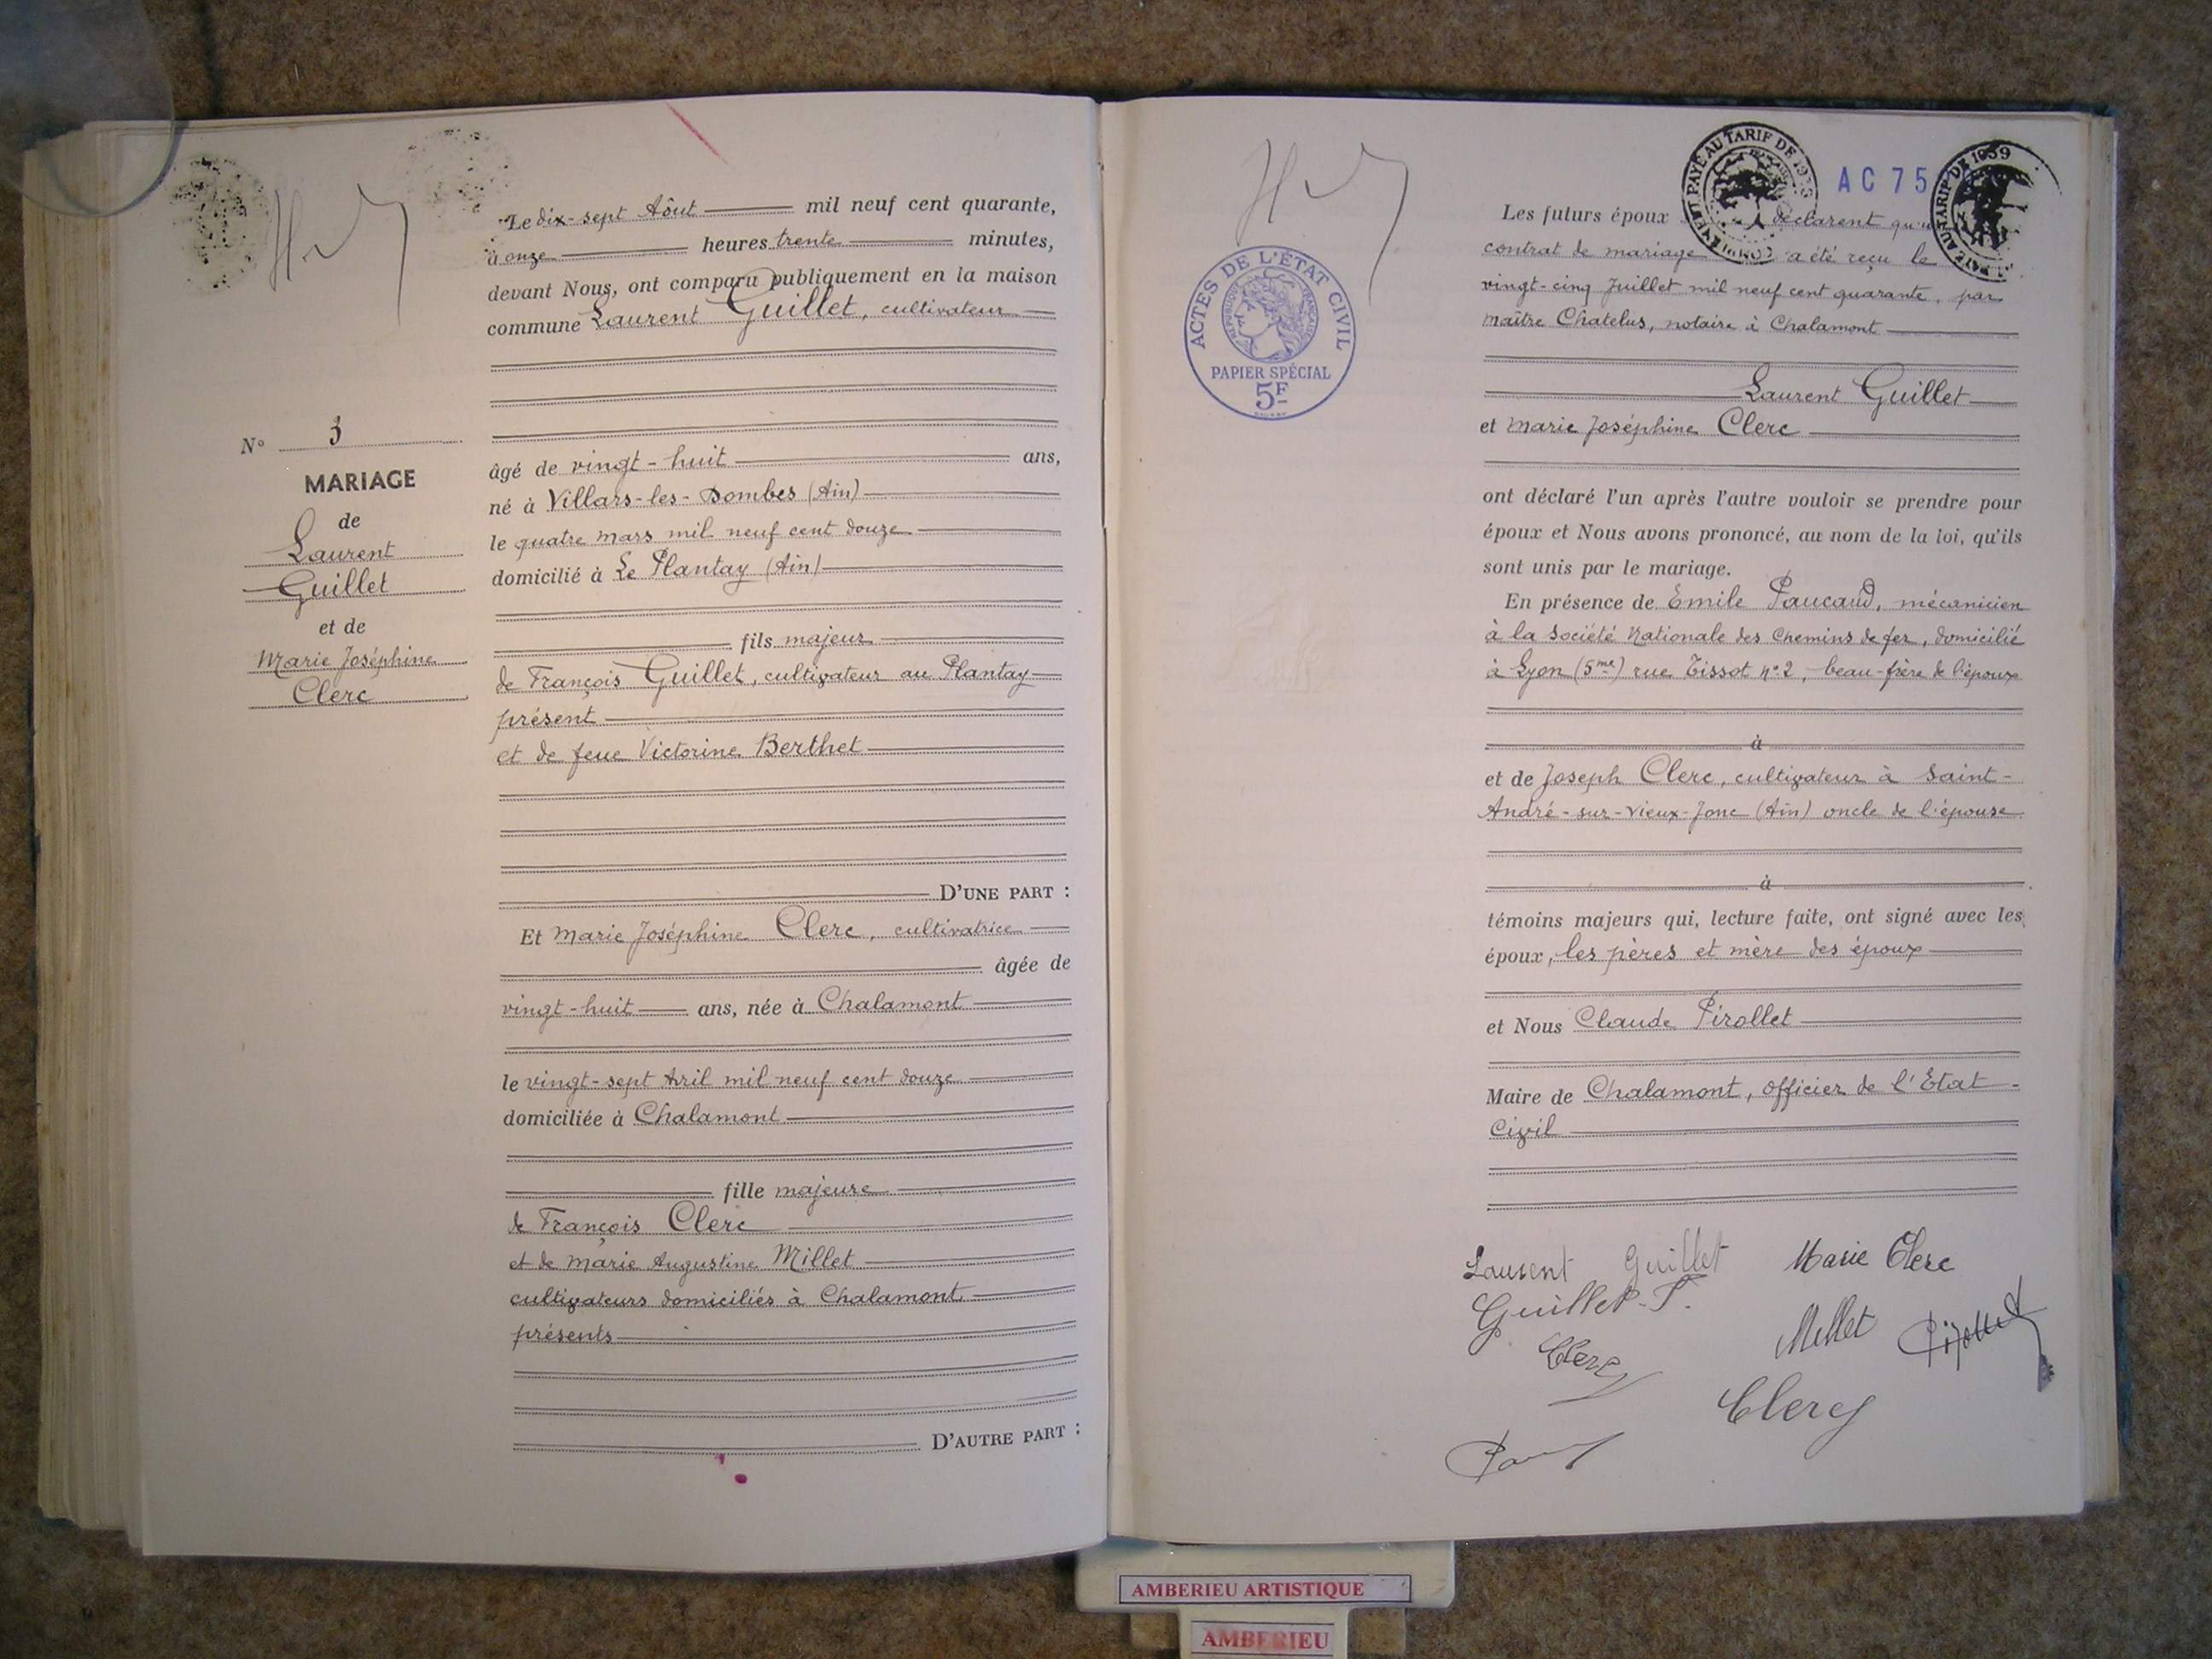 Le dix-sept Aôut mil neuf cent quarante,
à onze heures trente minutes,
devant Nous, ont comparu publiquement en la maison
commune Laurent Guillet, cultivateur
âgé de vingt-huit ans,
né à Villars-les-Dombes (Ain)
le quatre mars mil neuf cent douze
domicilié à Le Plantay (Ain)
fils majeur
de François Guillet, cultivateur au Plantay
présent
et de feue Victorine Berthet
D'UNE PART :
Et Marie Joséphine Clerc, cultivatrice
âgée de
vingt-huit ans, née à Chalamont
le vingt-sept Avril mil neuf cent douze
domiciliée à Chalamont
fille majeure
de François Clerc
et de Marie Augustine Millet
cultivateurs domiciliés à Chalamont
présents
D'AUTRE PART :
N° 3
MARIAGE
de
Laurent
Guillet
et de
Marie Joséphine
Clerc
ACTES DE L'ÉTAT CIVIL
RÉPUBLIQUE FRANÇAISE
PAPIER SPÉCIAL
5F
PAYÉ AU TARIF DE
AC 75
AU TARIF DE 1939
Les futurs époux déclarent qu'un
contrat de mariage a été reçu le
vingt-cinq Juillet mil neuf cent quarante, par
maître Chatelus, notaire à Chalamont
Laurent Guillet
et Marie Joséphine Clerc
ont déclaré l'un après l'autre vouloir se prendre pour
époux et Nous avons prononcé, au nom de la loi, qu'ils
sont unis par le mariage.
En présence de Emile Paucaud, mécanicien
à la Société Nationale des Chemins de fer, domicilié
à Lyon (5me) rue Tissot n°2, beau-frère de l'époux
à
et de Joseph Clerc, cultivateur à Saint-
André-sur-Vieux-Jonc (Ain) oncle de l'épouse
à
témoins majeurs qui, lecture faite, ont signé avec les
époux, les pères et mère des époux
et Nous Claude Pirollet
Maire de Chalamont, Officier de l'Etat-
Civil
Laurent Guillet Marie Clerc
Guillet
Clerc Millet Pirollet
Clerc
AMBERIEU ARTISTIQUE
AMBERIEU